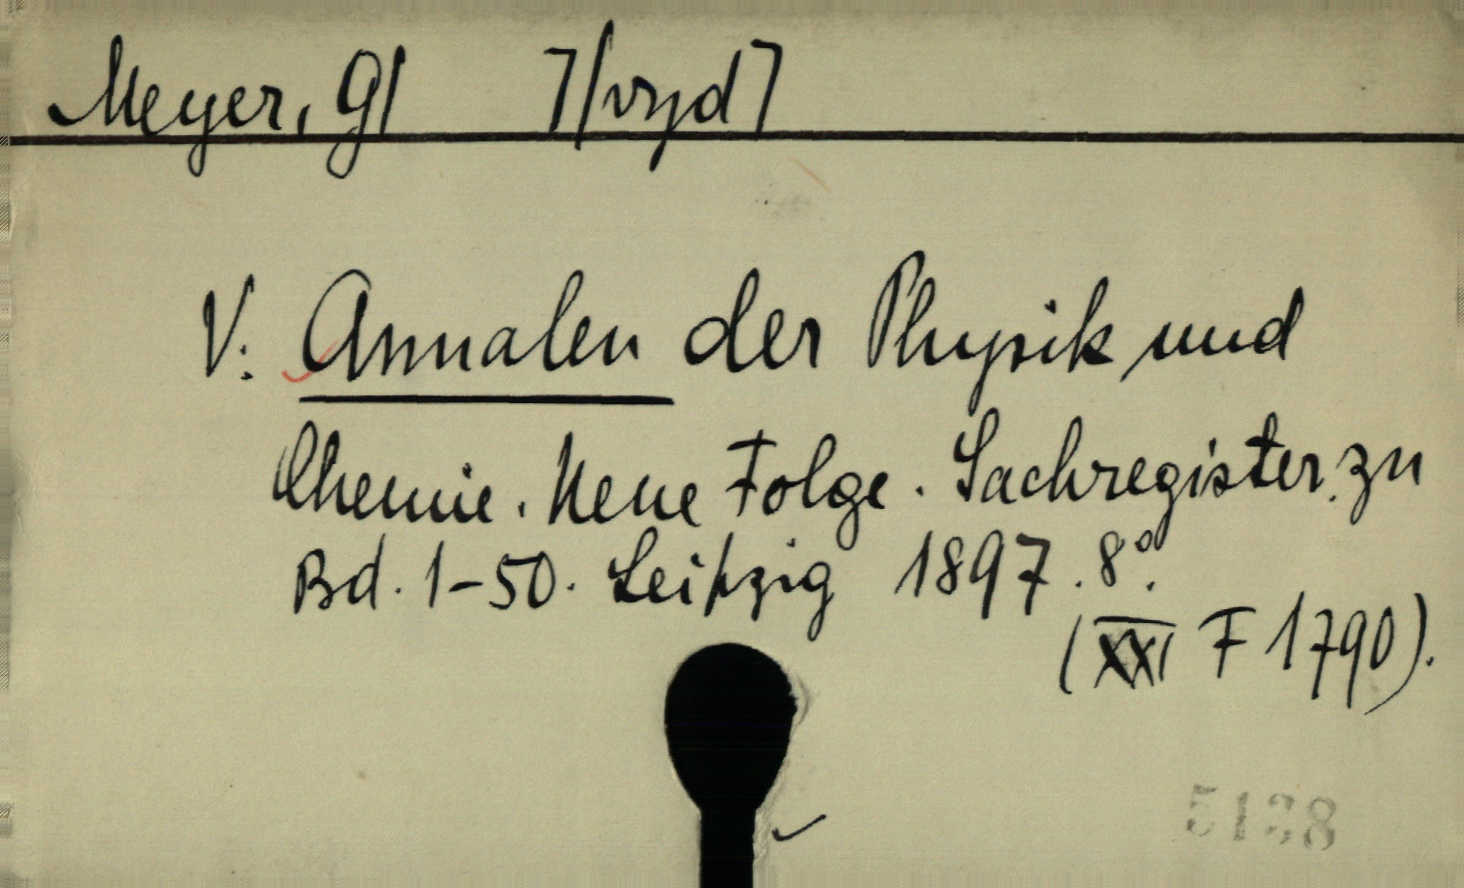 Meyer, G/ 7/vyd7
V: Annalen der Physik und
Chemie. Neue Folge. Sachregister zu
Bd. 1-50. Leipzig 1897. 8°.
(XXI F 1790).
5138